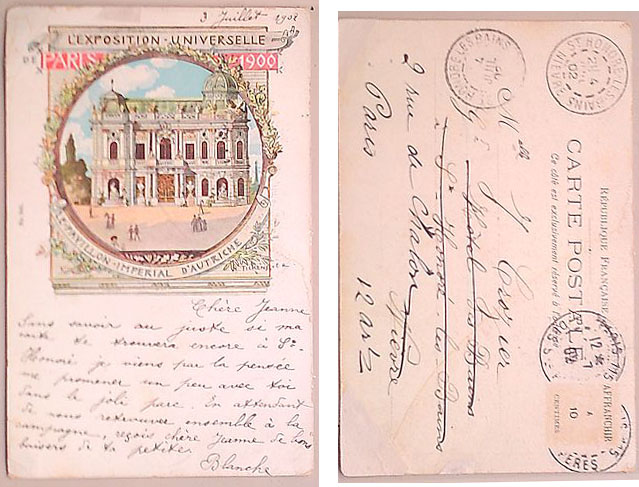 3 Juillet 1902
L'EXPOSITION UNIVERSELLE
DE PARIS 1900
PAVILLON IMPERIAL D'AUTRICHE
Chère Jeanne
Sans savoir au juste si ma
carte te trouvera encore à St
Honoré je viens par la pensée
me promener un peu avec toi
dans le joli parc. En attendant
de nous retrouver ensemble à la
campagne, reçois chère Jeanne de bons
baisers de ta petite
Blanche
RÉPUBLIQUE FRANÇAISE
CARTE POSTALE
Ce côté est exclusivement réservé à
Melle J. Crozier
Hôtel des Bains
à St Honoré les Bains
Nièvre
2 rue de Chalon
Paris
12 arz
ST HONORE-LES-BAINS
02
AFFRANCHIR
A
10
CENTIMES